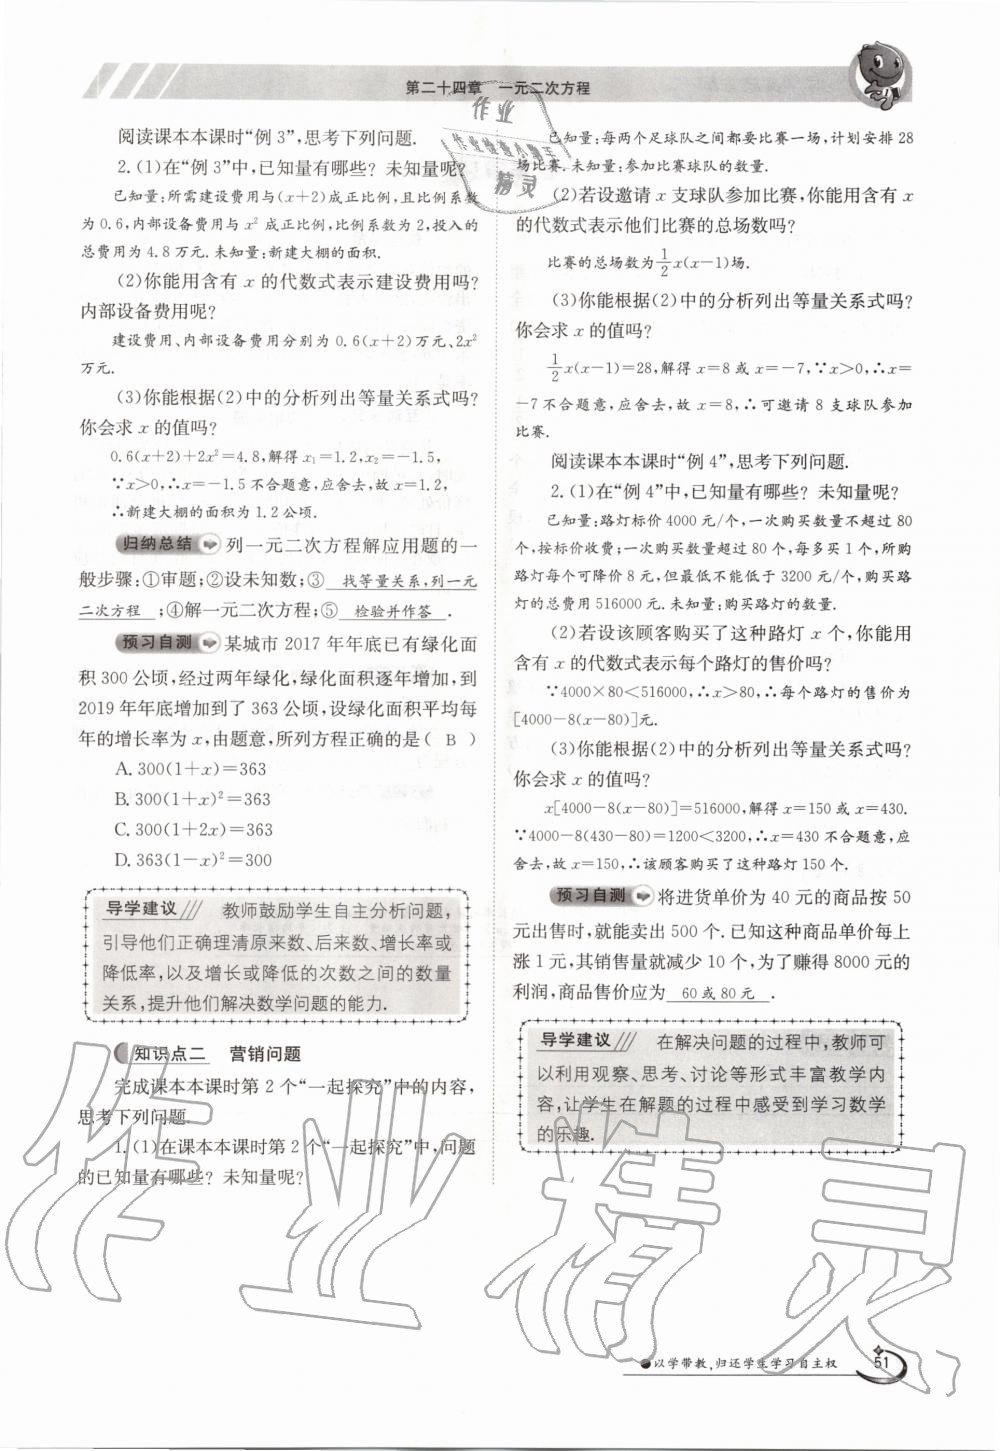 第二十四章　一元二次方程
阅读课本本课时“例3”,思考下列问题.
2.(1)在“例3”中,已知量有哪些? 未知量呢?
已知量:所需建设费用与(x+2)成正比例,且比例系数
为0.6,内部设备费用与 x² 成正比例,比例系数为2,投入的
总费用为4.8万元.未知量:新建大棚的面积.
(2)你能用含有 x 的代数式表示建设费用吗?
内部设备费用呢?
建设费用、内部设备费用分别为0.6(x+2)万元、2x²
万元.
(3)你能根据(2)中的分析列出等量关系式吗?
你会求 x 的值吗?
0.6(x+2)+2x²=4.8,解得 x₁=1.2,x₂=-1.5,
∵x>0,∴x=-1.5不合题意,应舍去,故 x=1.2,
∴新建大棚的面积为1.2公顷.
归纳总结 列一元二次方程解应用题的一
般步骤:①审题;②设未知数;③ 找等量关系,列一元
二次方程 ;④解一元二次方程;⑤ 检验并作答 .
预习自测 某城市2017年年底已有绿化面
积300公顷,经过两年绿化,绿化面积逐年增加,到
2019年年底增加到了363公顷,设绿化面积平均每
年的增长率为 x,由题意,所列方程正确的是( B )
A. 300(1+x)=363
B. 300(1+x)²=363
C. 300(1+2x)=363
D. 363(1-x)²=300
导学建议 教师鼓励学生自主分析问题,
引导他们正确理清原来数、后来数、增长率或
降低率,以及增长或降低的次数之间的数量
关系,提升他们解决数学问题的能力.
知识点二　营销问题
完成课本本课时第2个“一起探究”中的内容,
思考下列问题.
1.(1)在课本本课时第2个“一起探究”中,问题
的已知量有哪些? 未知量呢?
已知量:每两个足球队之间都要比赛一场,计划安排28
场比赛.未知量:参加比赛球队的数量.
(2)若设邀请 x 支球队参加比赛,你能用含有 x
的代数式表示他们比赛的总场数吗?
比赛的总场数为½x(x-1)场.
(3)你能根据(2)中的分析列出等量关系式吗?
你会求 x 的值吗?
½x(x-1)=28,解得 x=8 或 x=-7,∵x>0,∴x=
-7不合题意,应舍去,故 x=8,∴可邀请8支球队参加
比赛.
阅读课本本课时“例4”,思考下列问题.
2.(1)在“例4”中,已知量有哪些? 未知量呢?
已知量:路灯标价4000元/个,一次购买数量不超过80
个,按标价收费;一次购买数量超过80个,每多买1个,所购
路灯每个可降价8元,但最低不能低于3200元/个,购买路
灯的总费用516000元.未知量:购买路灯的数量.
(2)若设该顾客购买了这种路灯 x 个,你能用
含有 x 的代数式表示每个路灯的售价吗?
∵4000×80<516000,∴x>80,∴每个路灯的售价为
[4000-8(x-80)]元.
(3)你能根据(2)中的分析列出等量关系式吗?
你会求 x 的值吗?
x[4000-8(x-80)]=516000,解得 x=150 或 x=430.
∵4000-8(430-80)=1200<3200,∴x=430不合题意,应
舍去,故 x=150,∴该顾客购买了这种路灯150个.
预习自测 将进货单价为40元的商品按50
元出售时,就能卖出500个.已知这种商品单价每上
涨1元,其销售量就减少10个,为了赚得8000元的
利润,商品售价应为 60或80元 .
导学建议 在解决问题的过程中,教师可
以利用观察、思考、讨论等形式丰富教学内
容,让学生在解题的过程中感受到学习数学
的乐趣.
●以学带教,归还学生学习自主权
51
作业
精灵
作业精灵